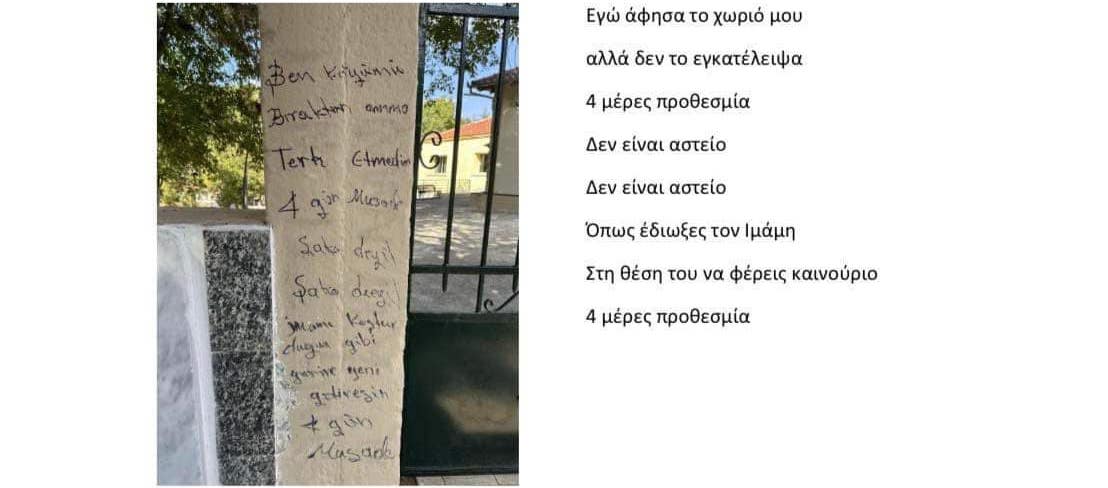 Ben Köyümü
Bıraktım amma
Terk Etmedim
4 gün Musade
Şaka deyil
Şaka deeyil
imamı Koştur
dugun gibi
yerine yeni
getiresin
4 gün
Musade
Εγώ άφησα το χωριό μου
αλλά δεν το εγκατέλειψα
4 μέρες προθεσμία
Δεν είναι αστείο
Δεν είναι αστείο
Όπως έδιωξες τον Ιμάμη
Στη θέση του να φέρεις καινούριο
4 μέρες προθεσμία